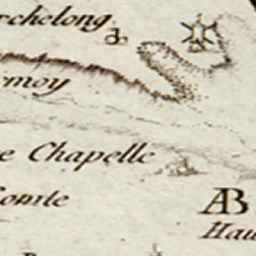 rchelong
rmoy
e Chapelle
Comte
AB
Hau